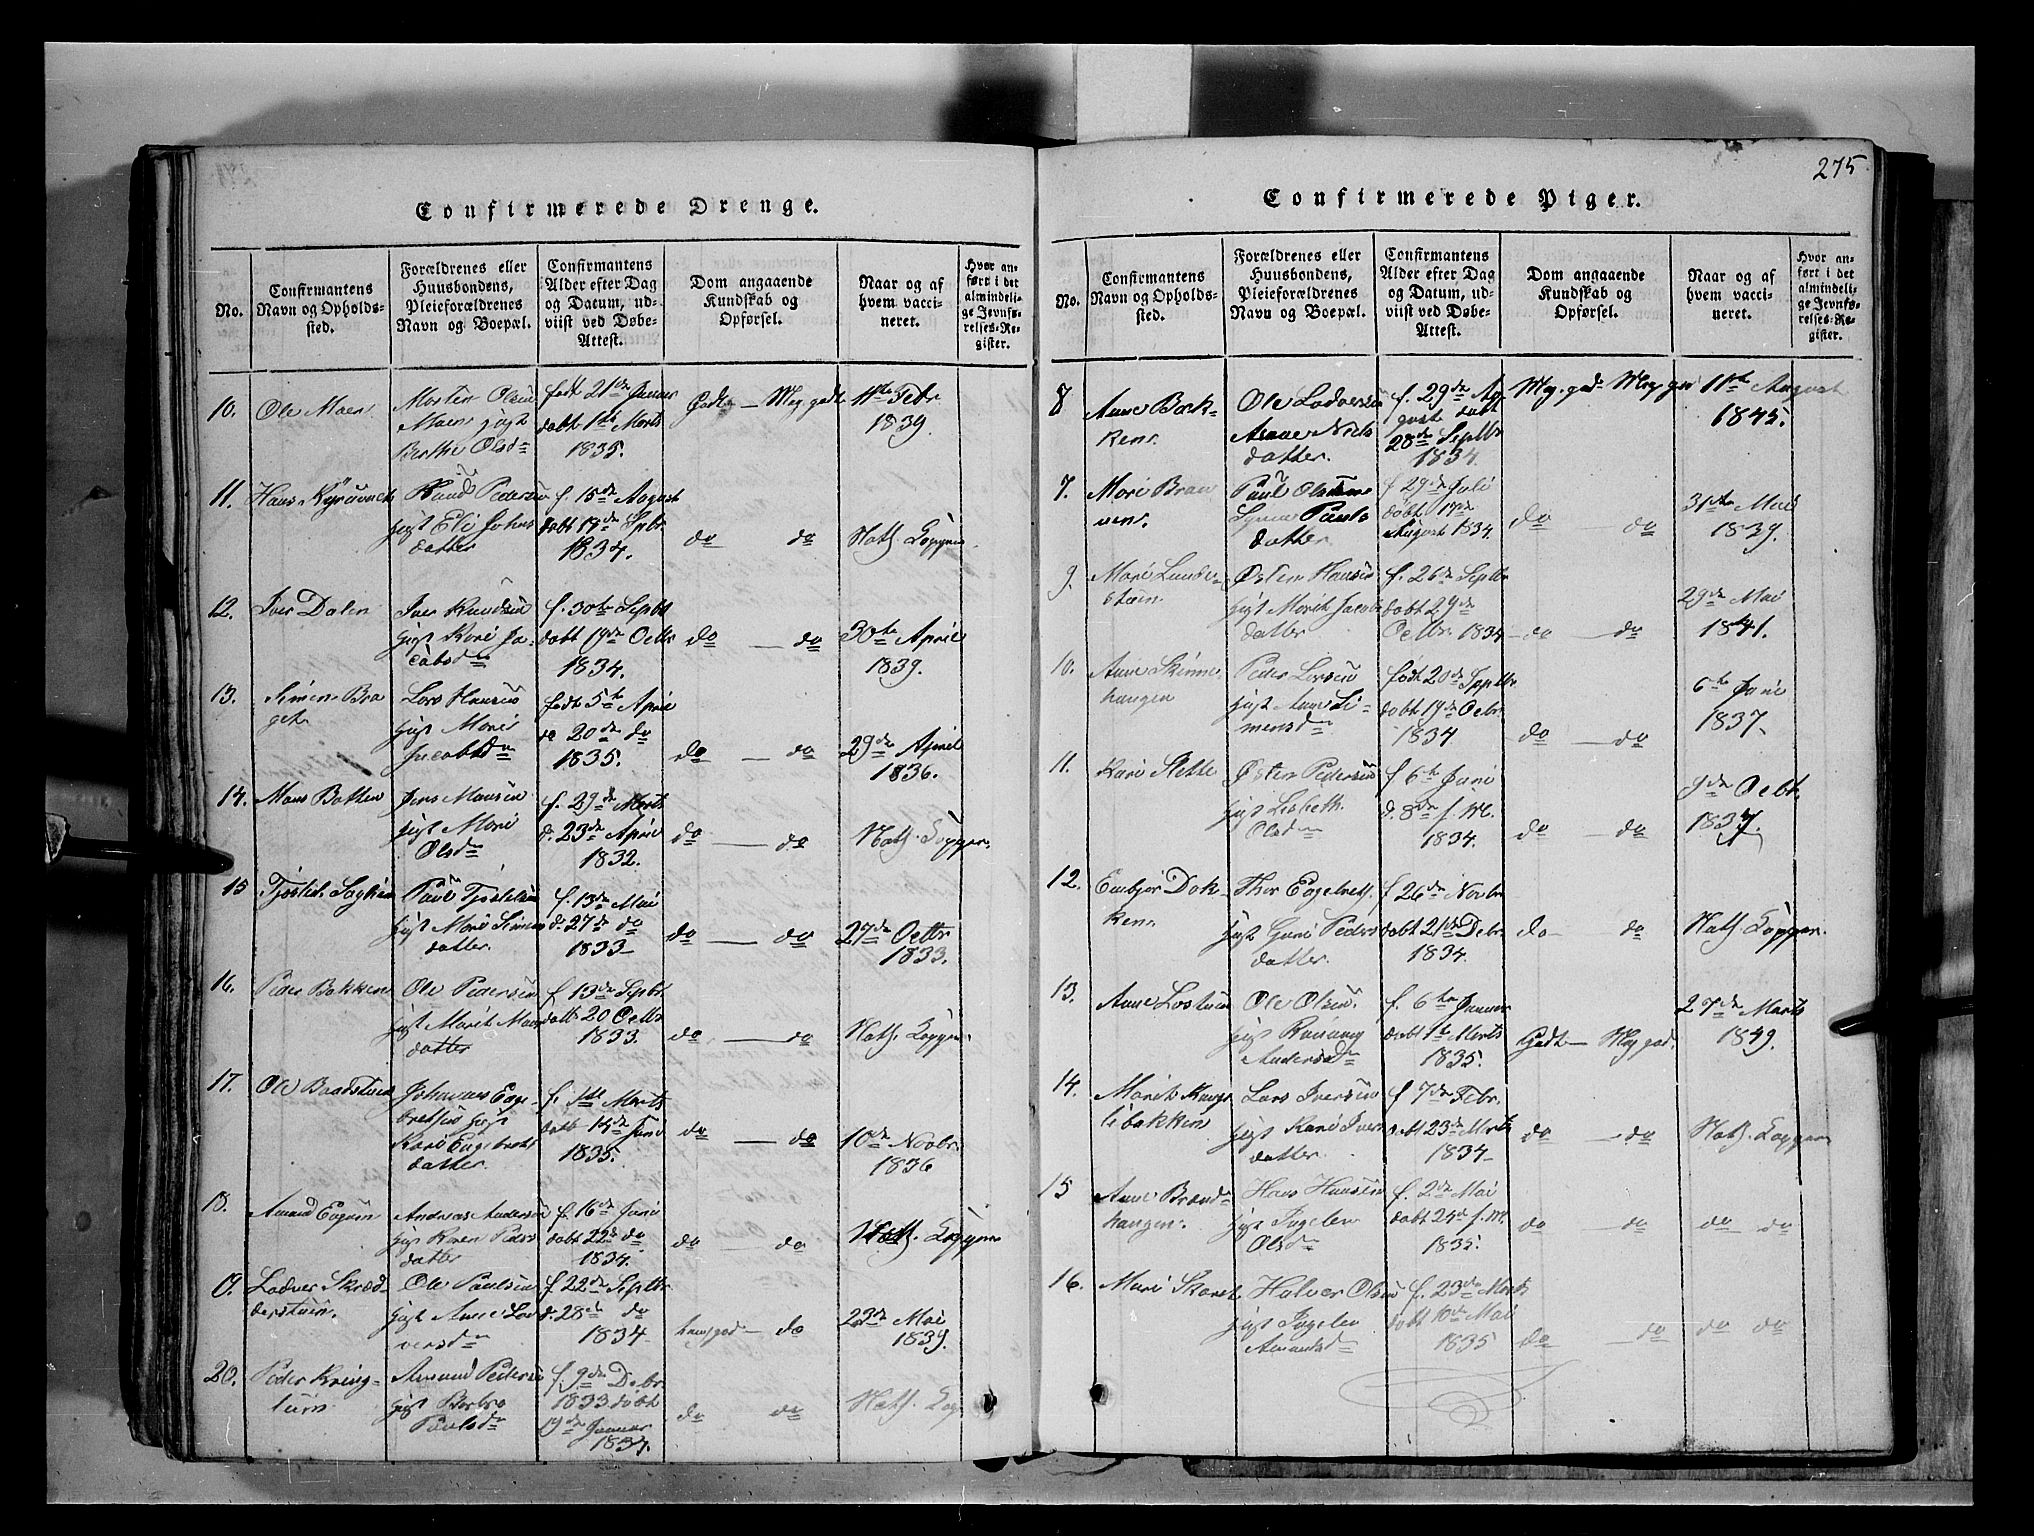 275
Confirmerede Drenge.
No.
Confirmantens
Navn og Opholds-
sted.
Forældrenes eller
Huusbondens,
Pleieforældrenes
Navn og Boepæl.
Confirmantens
Alder efter Dag
og Datum, ud-
viist ved Døbe-
Attest.
Dom angaaende
Kundskab og
Opførsel.
Naar og af
hvem vacci-
neret.
Hvor an-
ført i det
almindeli-
ge Jevnfø-
relses-Re-
gister.
10. Ole Moen
Morten Olsen
Moen gigt
Berthe Olsd
født 21de Januar
døbt 1ste Marts
1835.
Godt — Meg godt
11te Febr
1839.
11. Hans
Knud Pedersen
gigt Eli Johns
datter
f. 15de August
døbt 14de Spbr
1834.
do do
Nath. Kopper
12. Iver Dalen
Iver Knudsen
gigt Kari Ja-
cobsd
f. 30te Septbr
døbt 19de Octbr
1834.
do — do
30te April
1839.
13. Simen Bra-
get
Lars Hansen
gigt Mari
Jacobsd
født 5te April
do 20de do
1835.
do — do
29de April
1836.
14. Mons Batten
Jens Monsen
gigt Mari
Olsd
f. 29de Marts
d. 23de April
1832.
do — do
Nath. Kopper.
15 Tjøstel
Paul Tjøstelsen
gigt Mari Simens
datter.
f. 13de Mai
d. 27de do
1833
do — do
27de Octbr
1833.
16. Peder Bakken
Ole Pedersen
gigt Marit Mons
datter
f. 13de Sepbr.
døbt 20 Octbr
1833.
do — do
Nath. Kopper.
17. Ole Baadstuen
Johannes Enge-
bretsen gigt
Kari Engebrets
datter.
f. 1ste Marts
døbt 14de Juni
1835.
do — do
10de Novbr.
1836
18. Amund
Andreas Andersen
gigt Karen Peders
datter
f. 16de Juni
døbt 22de do
1834.
do — do
Nath. Kopper
19. Lodver Skræd-
derstuen.
Ole Paulsen
gigt Anne Lod-
versd
f. 22de Septbr.
d. 28de do
1834
do
23de Mai
1839.
20. Peder Kring-
tuen
Amund Pedersen
gigt Barbro
Paulsd
f. 9de Debr
1833 døbt
19de Januar
1834.
do do
Nath. Kop
Confirmerede Piger.
No.
Confirmantens
Navn og Opholds-
sted.
Forældrenes eller
Huusbondens,
Pleieforældrenes
Navn og Boepæl.
Confirmantens
Alder efter Dag
og Datum, ud-
viist ved Døbe-
Attest.
Dom angaaende
Kundskab og
Opførsel.
Naar og af
hvem vacci-
neret.
Hvor an-
ført i det
almindeli-
ge Jevnfø-
relses-Re-
gister.
8 Anne Bak-
ken.
Ole Lodversen
Anne Niels
datter.
f. 29de Au-
gust døbt
28de Septbr
1834.
Meg. godt Meg godt
11te August
1845.
7. Mari Brau
nen.
Paul Olsen
Pauls
datter
f 29de Juli
døbt 17de
August 1834.
do — do
31te Mai
1839.
9. Mari Lunde-
stuen.
Østen Hansen
gigt Marit Jacobs
datter
f. 26de Septbr
døbt 29de
Octbr. 1834
do — do
29de Mai
1841.
10. Anne Skinne-
haugen
Peder Larsen
gigt Anne Si-
mensd
født 20de Septbr
døbt 19de Octbr.
1834
do — do
6te Juni
1837.
11. Kari Slette
Østen Pedersen
gigt Lisbeth
Olsd
f 6te Juni
d. 8de s. M.
1834.
do do
9de Octb.
1837.
12. Embjør Dok-
ken.
Thor Engebrets.
gigt Guri Peders
datter.
f 26de Novbr
døbt 21de Debr.
1834.
do do
Nath. Kopper.
13. Anne
Ole Olsen.
gigt Rønnaug
Andersd
f. 6te Januar
døbt 1te Marts
1835.
Godt — Meg god.
27de Marts
1849.
14. Marit Haug-
libakken
Lars Iversen
gigt Kari Ivers
datter.
f 7de Febr.
døbt 23de Marts
1834
do — do
Nath. Kopper
15 Anne Brænd-
haugen.
Hans Hansen
gigt Ingeler
Olsd
f. 2de Mai
døbt 24de s. M.
1835.
do do
do do
16. Mari
Halvor Olsen
gigt Ingeler
Amundsd
f. 23de Marts
døbt 10de Mai
1835
do do
do do